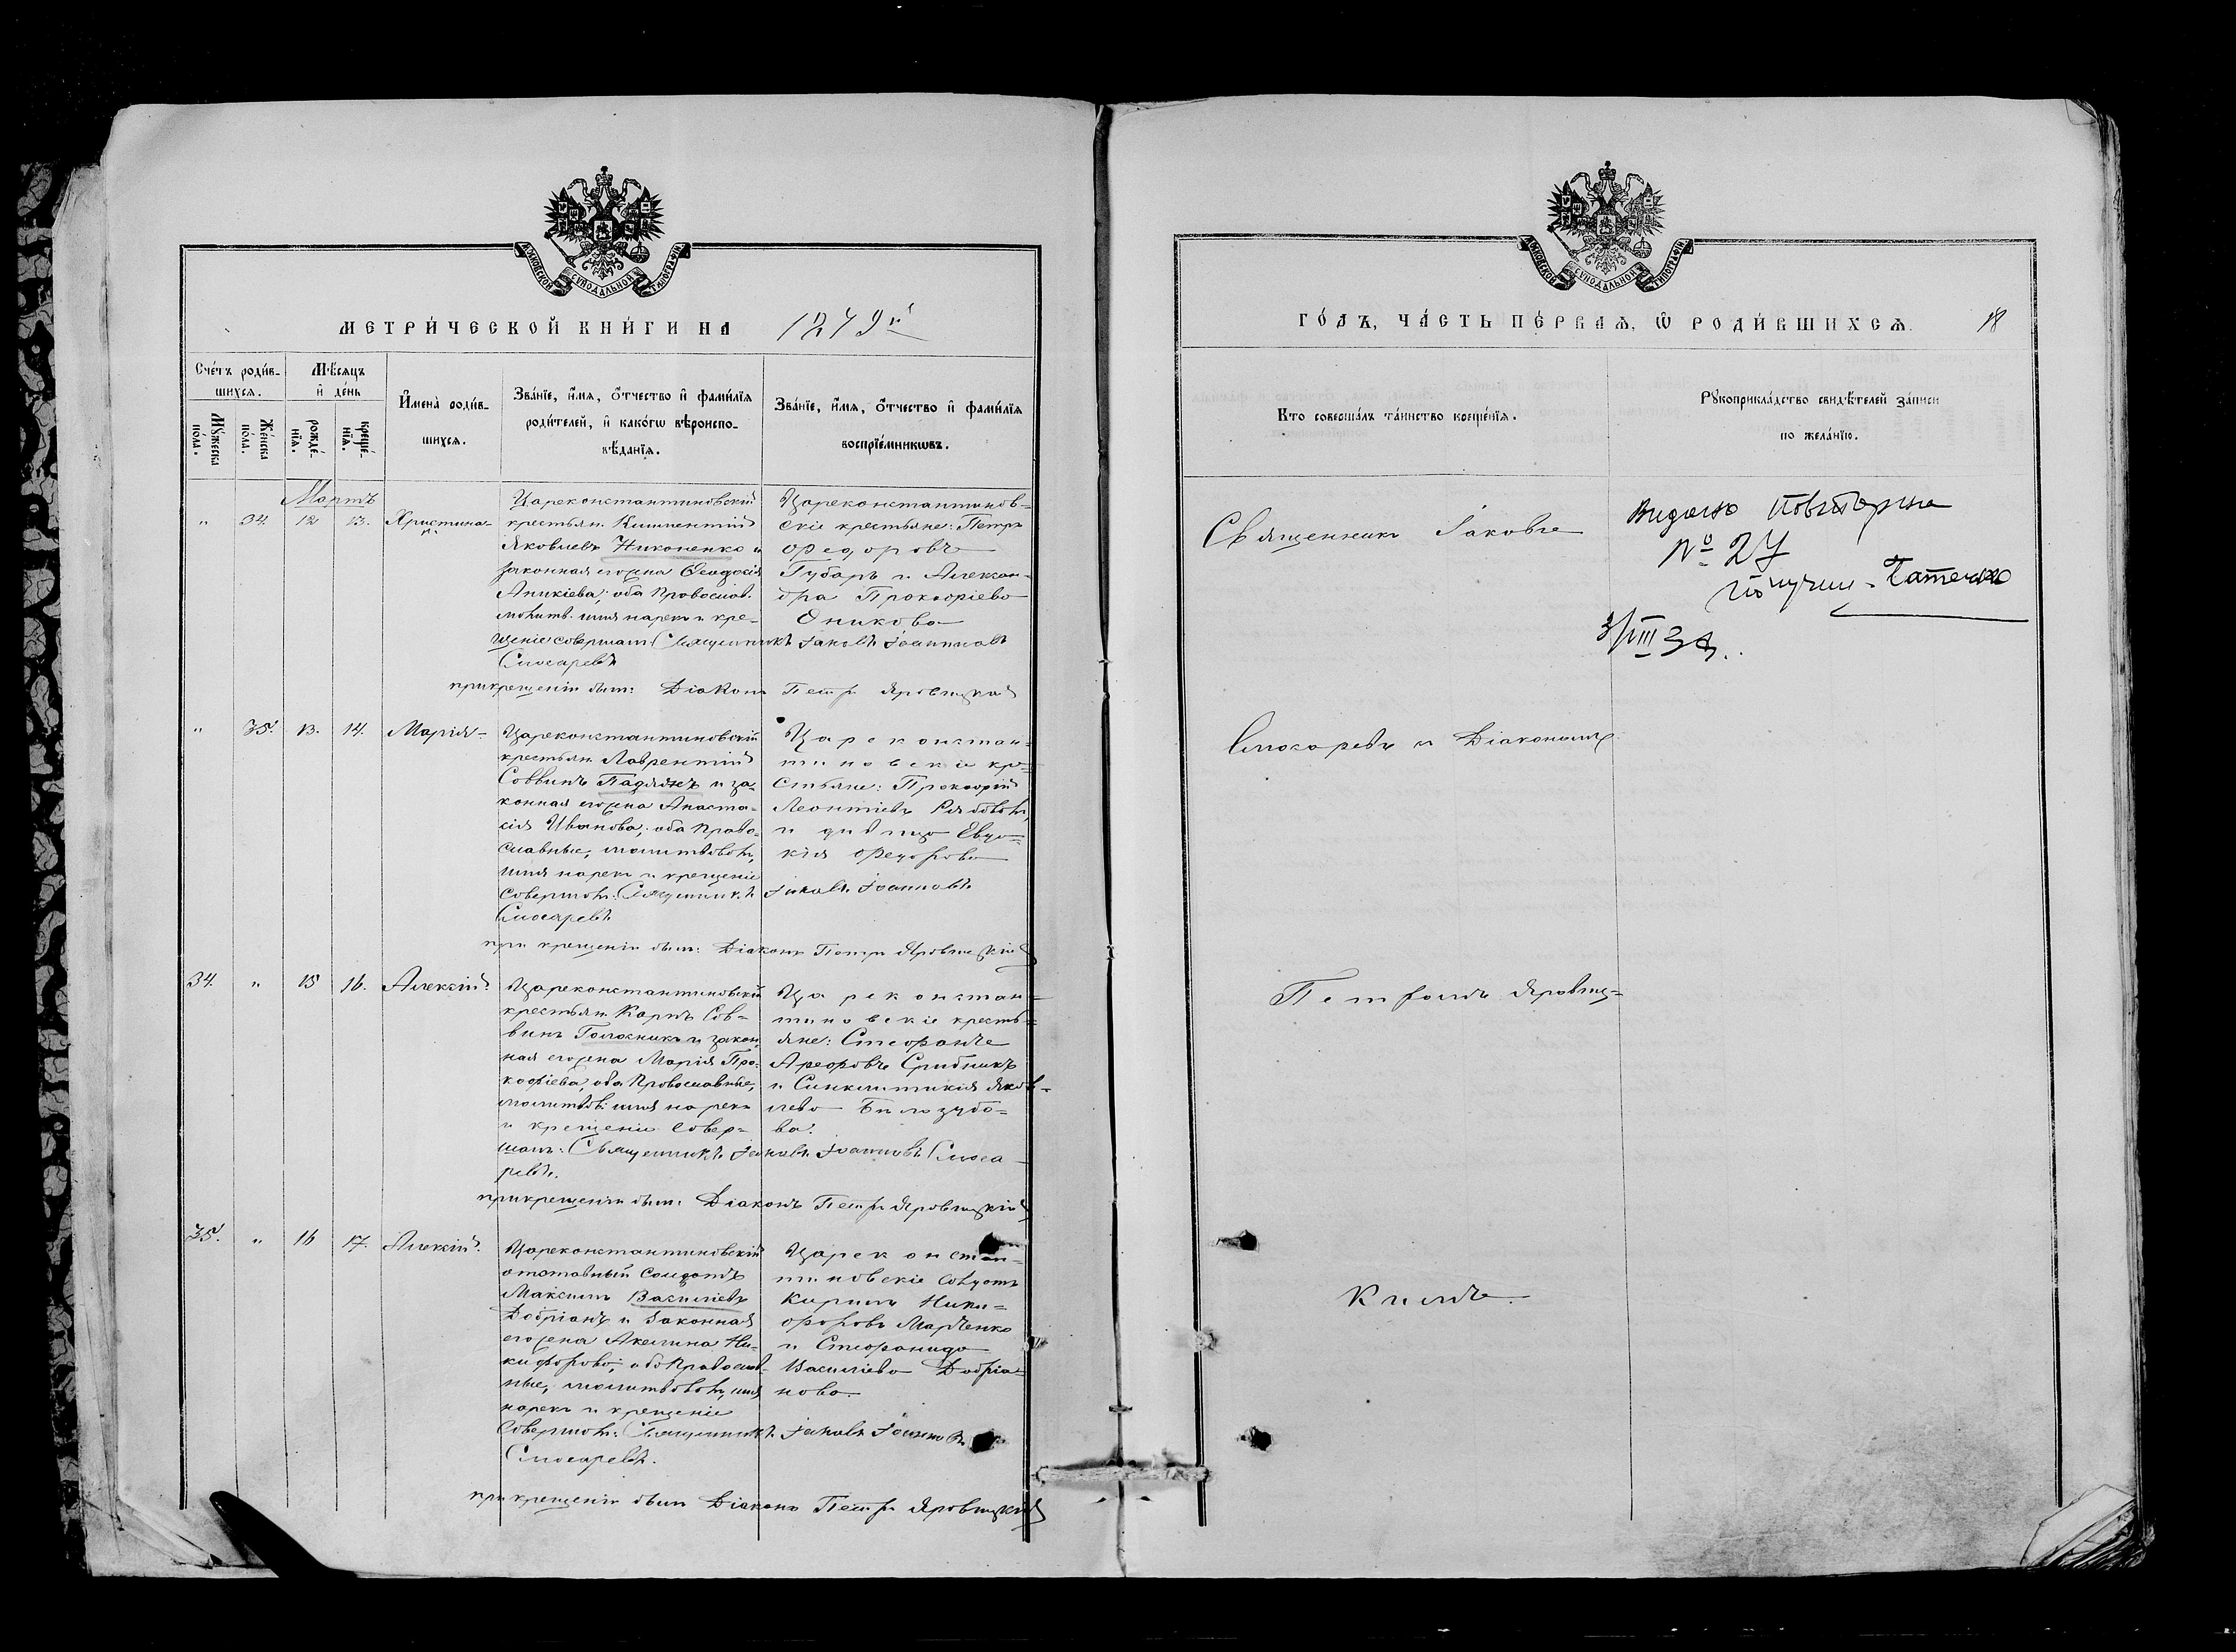 МОСКОВСКОЙ СѴНОДАЛЬНОЙ ТИПОГРАФІИ
МЕТРИ́ЧЕСКОЙ КНИ́ГИ НА 1879й
Сче́тъ роди́в-
шихсѧ.
Мѣ́сѧцъ
и҆ де́нь
Мꙋ́жеска
по́ла.
Же́нска
по́ла.
рожде́-
нїѧ.
креще́-
нїѧ.
И҆мена̀ роди́в-
шихсѧ.
Зва́нїе, и҆́мѧ, ѻ҆́тчество и҆ фамилїѧ
роди́телей, и҆ како́гѡ вѣроиспо-
вѣ́данїѧ.
Зва́нїе, и҆́мѧ, ѻ҆́тчество и҆ фами́лїѧ
воспрїе́мникѡвъ.
Мартъ
" 34. 12 13. Христина
Цареконстантиновскій
крестьян. Климентій
Яковлевъ Никоненко и
законная его жена Ѳеодосія
Аникіева; оба Православ.
молитв. имя нарек. и кре-
щеніе совершалъ Священникъ Іаковъ Іоанновъ
Слюсаревъ
Цареконстантинов-
скіе крестьяне: Петръ
Ѳедоровъ
Губарь и Алексан-
дра Прокофіева
Оникова
при крещеніи былъ: Діаконъ Петръ Яровицкій
" 35. 13. 14. Марія
Цареконстантиновскій
крестьян. Лаврентій
Саввинъ и за-
конная его жена Анаста-
сія Иванова; оба право-
славные, молитвовалъ,
имя нарек. и крещеніе
совершалъ: Священникъ Іаковъ Іоанновъ
Слюсаревъ
Цареконстан-
тиновскіе кре-
стьяне: Прокофій
Леонтіевъ
и дѣвица Евдо-
кія Ѳедорова
при крещеніи былъ: Діаконъ Петръ Яровицкій
34. " 15 16. Алексій
Цареконстантиновскій
крестьян. Карпъ Сав-
винъ Голосникъ и закон-
ная его жена Марія Про-
кофіева, оба Православные,
молитвов. имя нарек.
и крещеніе совер-
шалъ: Священникъ Іаковъ Іоанновъ Слюса-
ревъ.
Цареконстан-
тиновскіе кресть-
яне: Стефанъ
Арефовъ
и Синклитикія Яков-
лева Билозубо-
ва.
при крещеніи былъ: Діаконъ Петръ Яровицкій
35. " 16 17. Алексій
Цареконстантиновскій
отставный Солдатъ
Максимъ Василіевъ
Добріанъ и законная
его жена Акилина Ни-
кифорова; оба Православ-
ные, молитвовалъ, имя
нарек. и крещеніе
совершалъ: Священникъ Іаковъ Іоанновъ
Слюсаревъ.
Цареконстан-
тиновскіе Солдатъ
Кирилъ Ники-
форовъ Марченко
и Стефанида
Василіева Добріа-
нова.
при крещеніи былъ Діаконъ Петръ Яровицкій
МОСКОВСКОЙ СѴНОДАЛЬНОЙ ТИПОГРАФІИ
ГО́ДЪ, ЧА́СТЬ ПЕ́РВАѦ, Ѡ҆ РОДИ́ВШИХСѦ. 18
Кто соверша́лъ та́инство креще́нїѧ.
Рꙋкоприкла́дство свидѣ́телей за́писи
по жела́нїю.
Священникъ Іаковъ
Слюсаревъ и Діакономъ
Петромъ Яровиц-
кимъ.
Видано повторна
№ 27
3/VIII 3